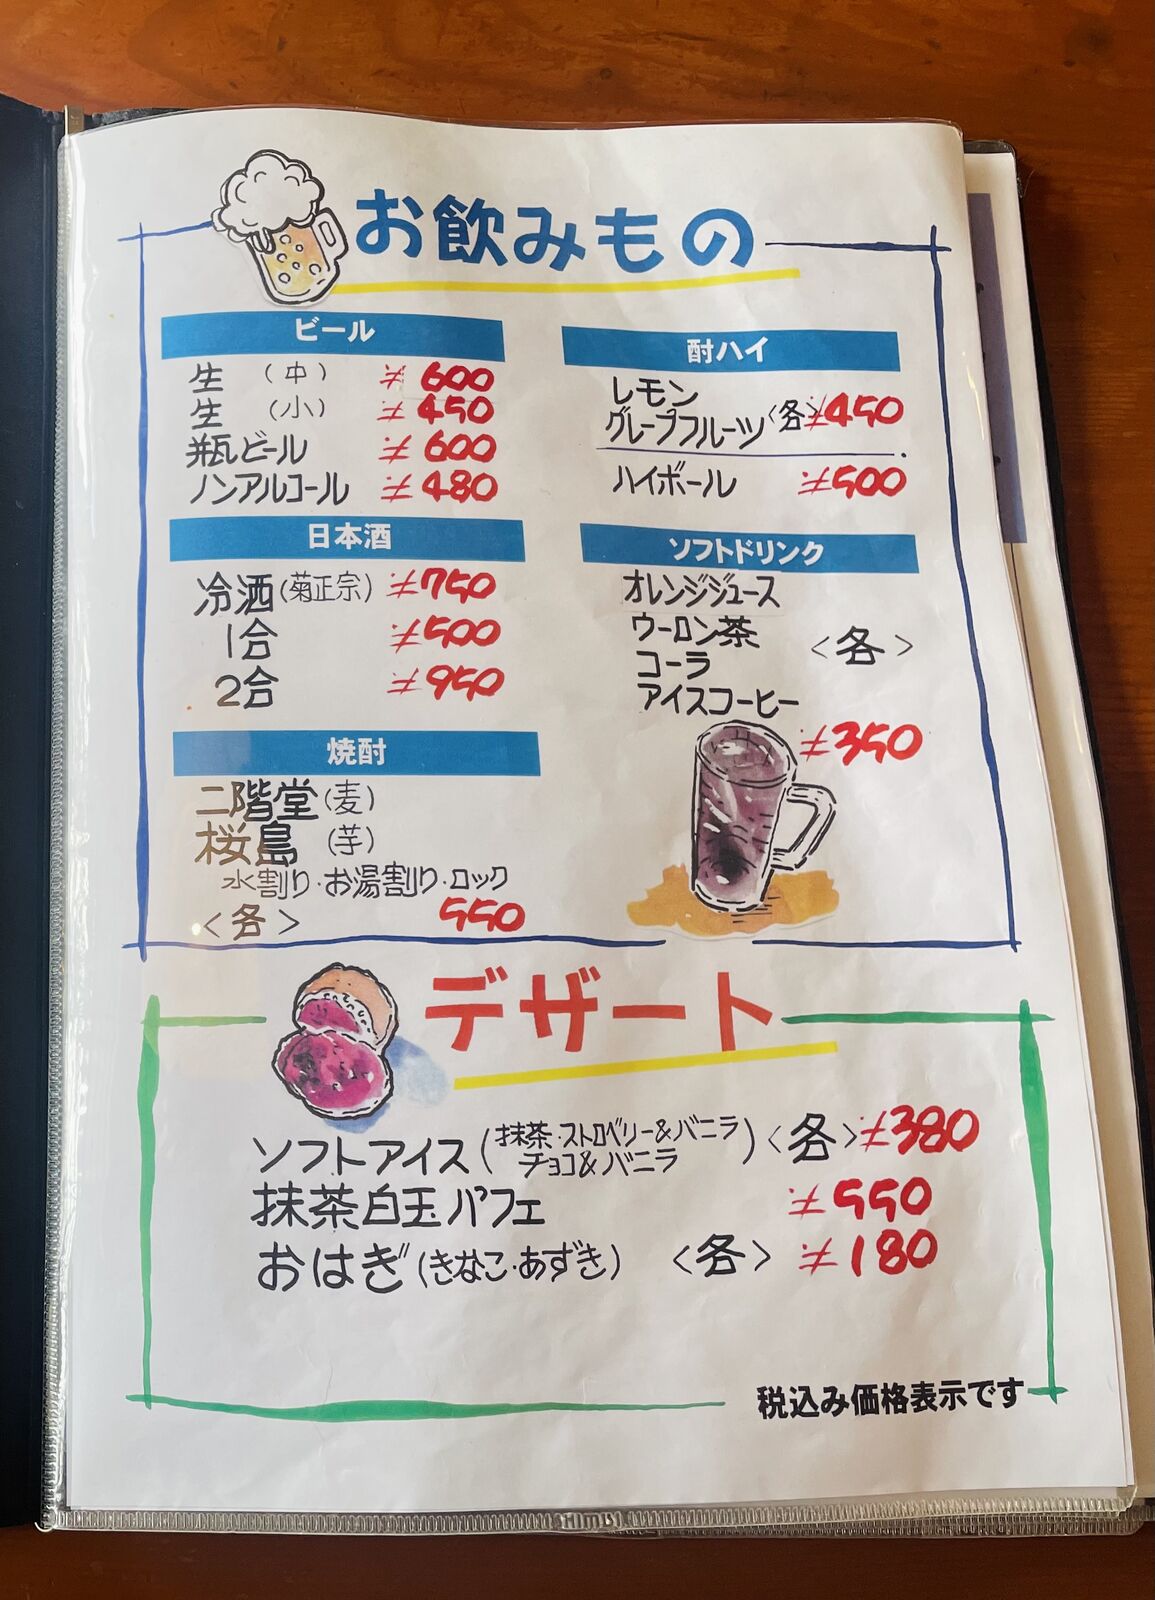 お飲みもの
ビール
生 (中) ¥600
生 (小) ¥450
瓶ビール ¥600
ノンアルコール ¥480
日本酒
冷酒(菊正宗) ¥750
1合 ¥500
2合 ¥950
焼酎
二階堂(麦)
桜島 (芋)
水割り・お湯割り・ロック
<各> 550
酎ハイ
レモン
グレープフルーツ<各>¥450
ハイボール ¥500
ソフトドリンク
オレンジジュース
ウーロン茶 <各>
コーラ
アイスコーヒー
¥350
デザート
ソフトアイス(抹茶・ストロベリー&バニラ
チョコ&バニラ) <各>¥380
抹茶白玉パフェ ¥550
おはぎ(きなこ・あずき) <各> ¥180
税込み価格表示です